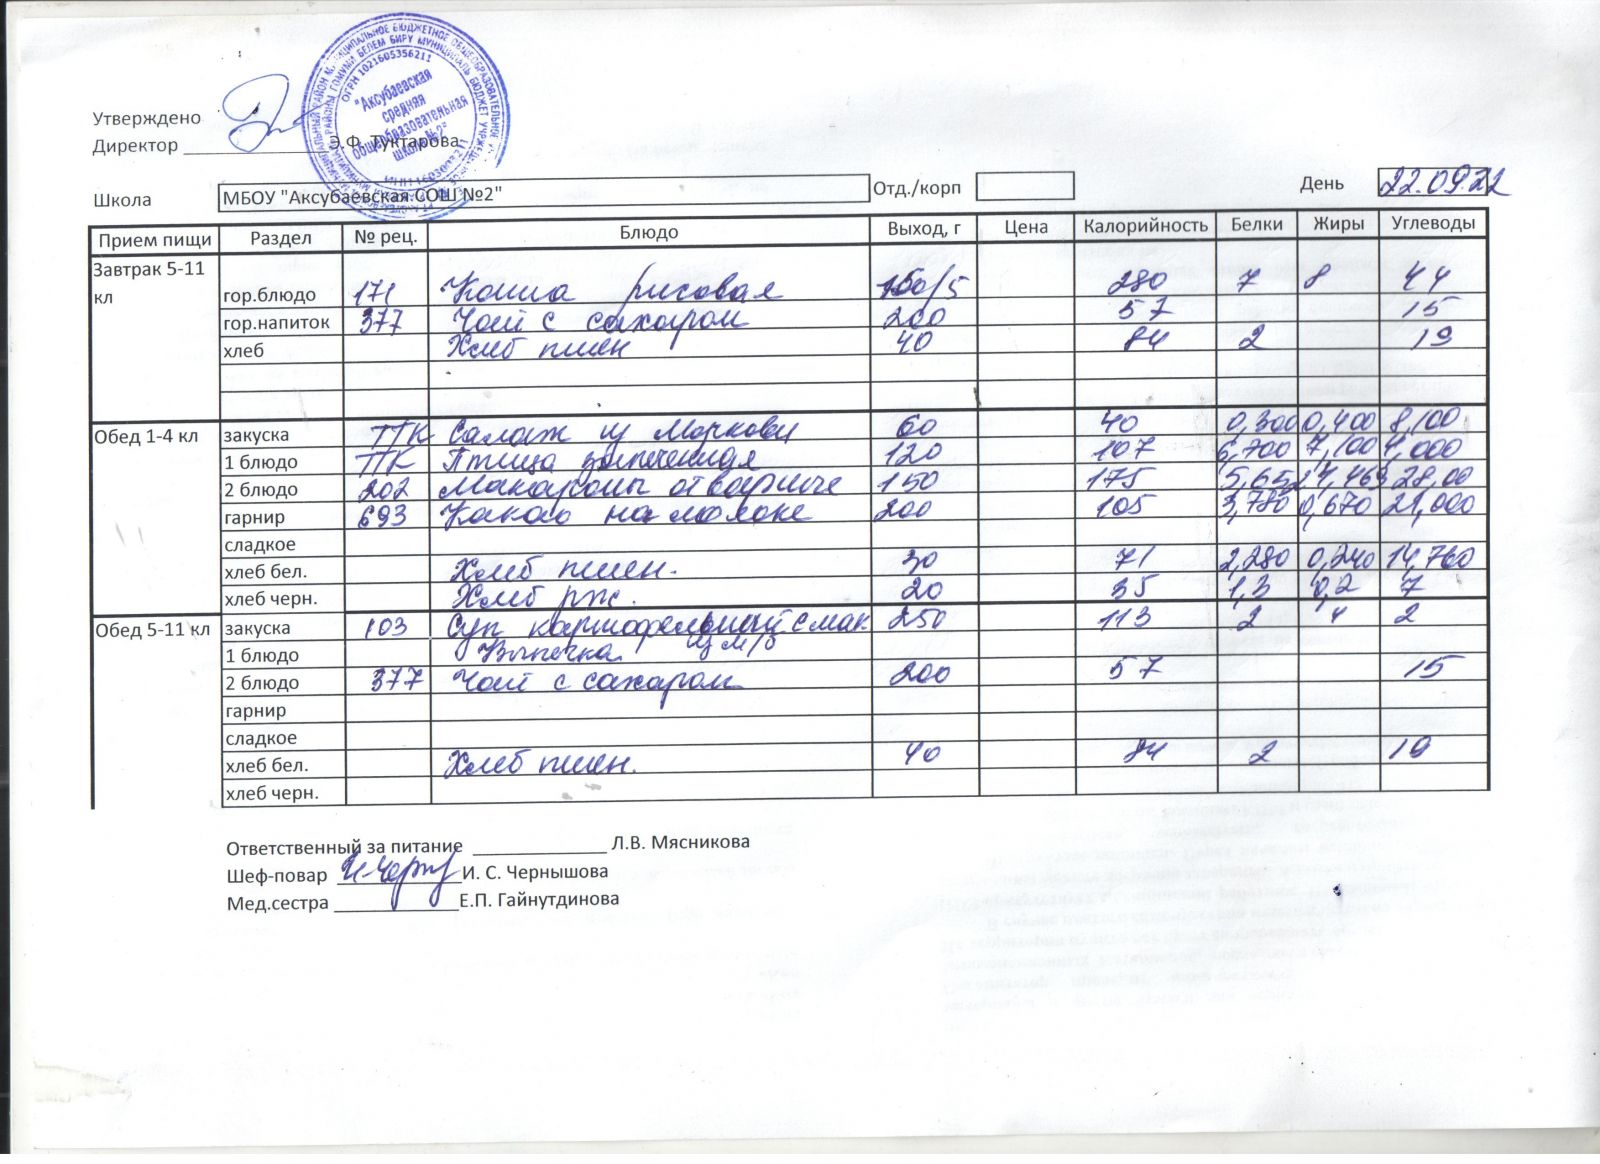 Утверждено
Директор Э.Ф. Туктарова
"Аксубаевская
средняя
общеобразовательная
школа №2"
ОГРН 1021605356211
Школа МБОУ "Аксубаевская СОШ №2" Отд./корп День 22.09.22
Прием пищи Раздел № рец. Блюдо Выход, г Цена Калорийность Белки Жиры Углеводы
Завтрак 5-11
кл гор.блюдо 171 Каша рисовая 150/5 280 7 8 44
гор.напиток 377 Чай с сахаром 200 57 15
хлеб Хлеб пшен 40 84 2 19
Обед 1-4 кл закуска ТТК Салат из моркови 60 40 0,300 0,400 8,100
1 блюдо ТТК Птица запеченная 120 107 6,700 7,100 4,000
2 блюдо 202 Макароны отварные 150 175 5,652 4,463 28,00
гарнир 693 Какао на молоке 200 105 3,780 0,670 21,000
сладкое
хлеб бел. Хлеб пшен. 30 71 2,280 0,240 14,760
хлеб черн. Хлеб рж. 20 35 1,3 0,2 7
Обед 5-11 кл закуска 103 Суп картофельный с мак 250 113 2 4 2
1 блюдо Выпечка
2 блюдо 377 Чай с сахаром 200 57 15
гарнир
сладкое
хлеб бел. Хлеб пшен. 40 84 2 19
хлеб черн.
Ответственный за питание Л.В. Мясникова
Шеф-повар И. С. Чернышова
Мед.сестра Е.П. Гайнутдинова